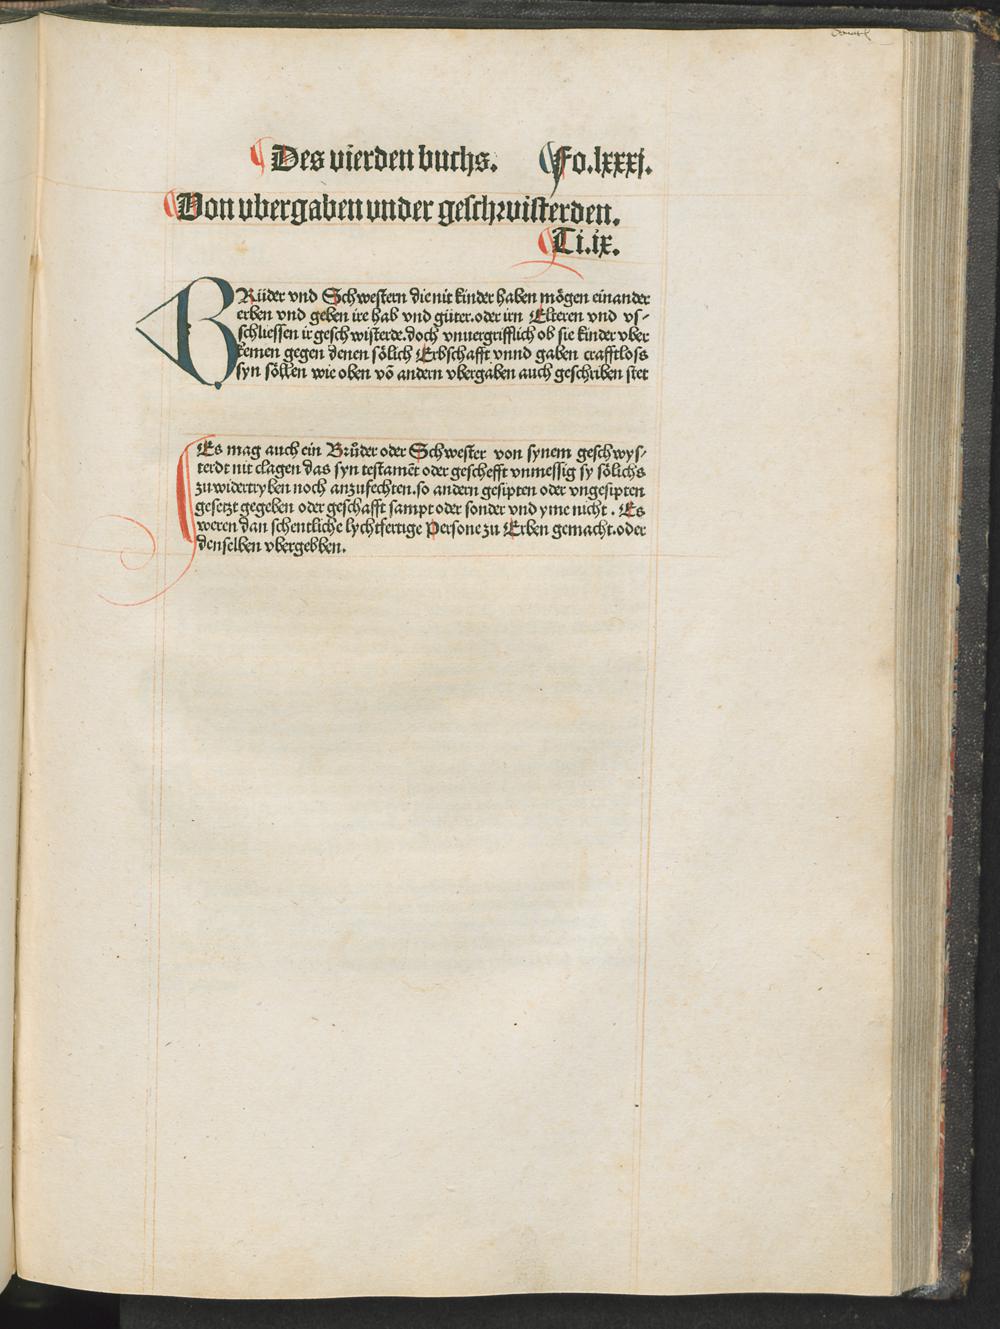 Des vierden buchs. Fo.lxxxj.
Von vbergaben vnder geschwisterden.
Ti.ix.
BRüder vnd Schwestern die nit kinder haben mögen ein ander
erben vnd geben ire hab vnd güter.oder irn Elteren vnd vs-
schliessen ir geschwisterde.doch vnuergrifflich ob sie kinder vber
kemen gegen denen sölich Erbschafft vnnd gaben crafftloss
syn söllen wie oben võ andern vbergaben auch geschriben stet
Es mag auch ein Brůder oder Schwester von synem geschwys-
terdt nit clagen das syn testamẽt oder geschefft vnmessig sy sölichs
zu widertryben noch anzufechten.so andern gesipten oder vngesipten
gesetzt gegeben oder geschafft sampt oder sonder vnd yme nicht. Es
weren dan schentliche lychtfertige Persone zu Erben gemacht.oder
denselben vbergebben.